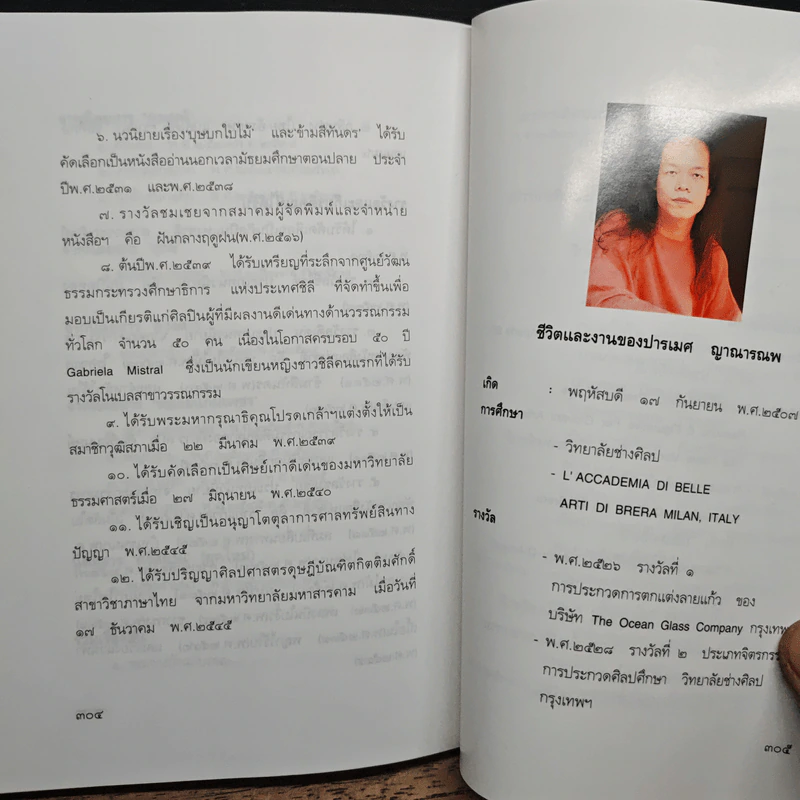 ๖. นวนิยายเรื่อง'บุษบกใบไม้' และ'ข้ามสีทันดร' ได้รับ
คัดเลือกเป็นหนังสืออ่านนอกเวลามัธยมศึกษาตอนปลาย ประจำ
ปีพ.ศ.๒๕๓๑ และพ.ศ.๒๕๓๘
๗. รางวัลชมเชยจากสมาคมผู้จัดพิมพ์และจำหน่าย
หนังสือฯ คือ ฝันกลางฤดูฝน(พ.ศ.๒๕๑๖)
๘. ต้นปีพ.ศ.๒๕๓๙ ได้รับเหรียญที่ระลึกจากศูนย์วัฒน
ธรรมกระทรวงศึกษาธิการ แห่งประเทศชิลี ที่จัดทำขึ้นเพื่อ
มอบเป็นเกียรติแก่ศิลปินผู้ที่มีผลงานดีเด่นทางด้านวรรณกรรม
ทั่วโลก จำนวน ๕๐ คน เนื่องในโอกาสครบรอบ ๕๐ ปี
Gabriela Mistral ซึ่งเป็นนักเขียนหญิงชาวชิลีคนแรกที่ได้รับ
รางวัลโนเบลสาขาวรรณกรรม
๙. ได้รับพระมหากรุณาธิคุณโปรดเกล้าฯแต่งตั้งให้เป็น
สมาชิกวุฒิสภาเมื่อ ๒๒ มีนาคม พ.ศ.๒๕๓๙
๑๐. ได้รับคัดเลือกเป็นศิษย์เก่าดีเด่นของมหาวิทยาลัย
ธรรมศาสตร์เมื่อ ๒๗ มิถุนายน พ.ศ.๒๕๔๐
๑๑. ได้รับเชิญเป็นอนุญาโตตุลาการศาลทรัพย์สินทาง
ปัญญา พ.ศ.๒๕๔๕
๑๒. ได้รับปริญญาศิลปศาสตรดุษฎีบัณฑิตกิตติมศักดิ์
สาขาวิชาภาษาไทย จากมหาวิทยาลัยมหาสารคาม เมื่อวันที่
๑๗ ธันวาคม พ.ศ.๒๕๔๕
๓๐๔
ชีวิตและงานของปารเมศ ญาณารณพ
เกิด : พฤหัสบดี ๑๗ กันยายน พ.ศ.๒๕๐๗
การศึกษา
- วิทยาลัยช่างศิลป
- L' ACCADEMIA DI BELLE
ARTI DI BRERA MILAN, ITALY
รางวัล
- พ.ศ.๒๕๒๖ รางวัลที่ ๑
การประกวดการตกแต่งลายแก้ว ของ
บริษัท The Ocean Glass Company กรุงเทพ
- พ.ศ.๒๕๒๘ รางวัลที่ ๒ ประเภทจิตรกรร
การประกวดศิลปศึกษา วิทยาลัยช่างศิลป
กรุงเทพฯ
๓๐๕